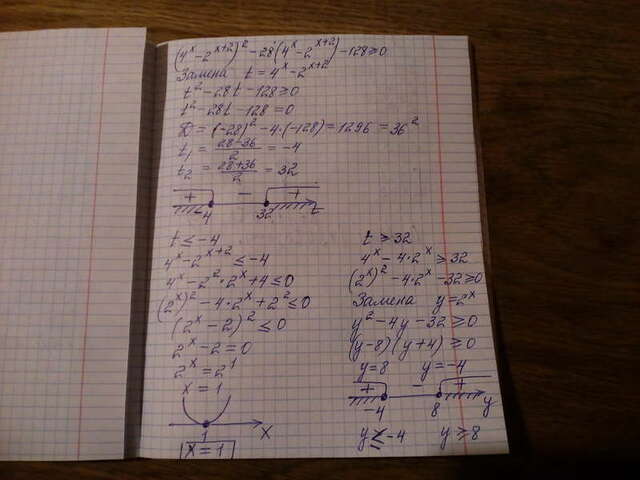 (4ˣ-2ˣ⁺²)²-28(4ˣ-2ˣ⁺²)-128≥0
Замена t=4ˣ-2ˣ⁺²
t²-28t-128≥0
t²-28t-128=0
D=(-28)²-4·(-128)=1296=36²
t₁=(28-36)/2=-4
t₂=(28+36)/2=32
+ - +
-4 32 t
t≤-4
4ˣ-2ˣ⁺²≤-4
4ˣ-2²·2ˣ+4≤0
(2ˣ)²-4·2ˣ+2²≤0
(2ˣ-2)²≤0
2ˣ-2=0
2ˣ=2¹
x=1
1 X
x=1
t≥32
4ˣ-4·2ˣ≥32
(2ˣ)²-4·2ˣ-32≥0
Замена y=2ˣ
y²-4y-32≥0
(y-8)(y+4)≥0
y=8 y=-4
+ - +
-4 8 y
y≤-4 y≥8